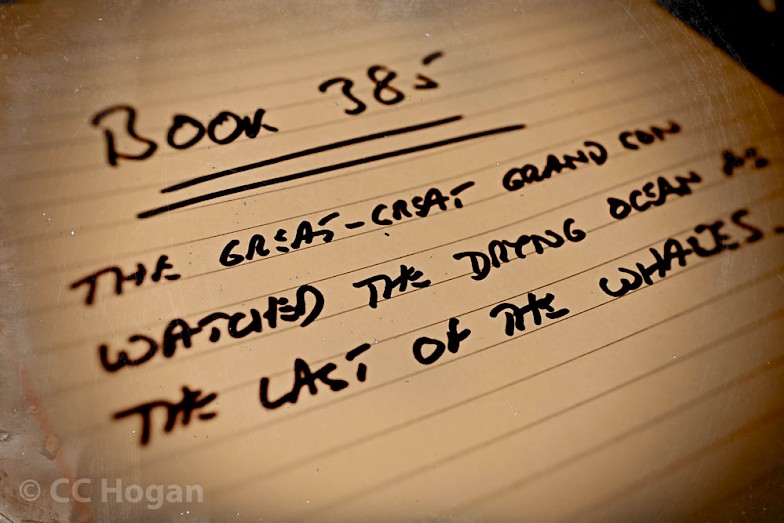 BOOK 385
THE GREAT-GREAT GRAND SON
WATCHED THE DRYING OCEAN AS
THE LAST OF THE WHALES.
© CC Hogan